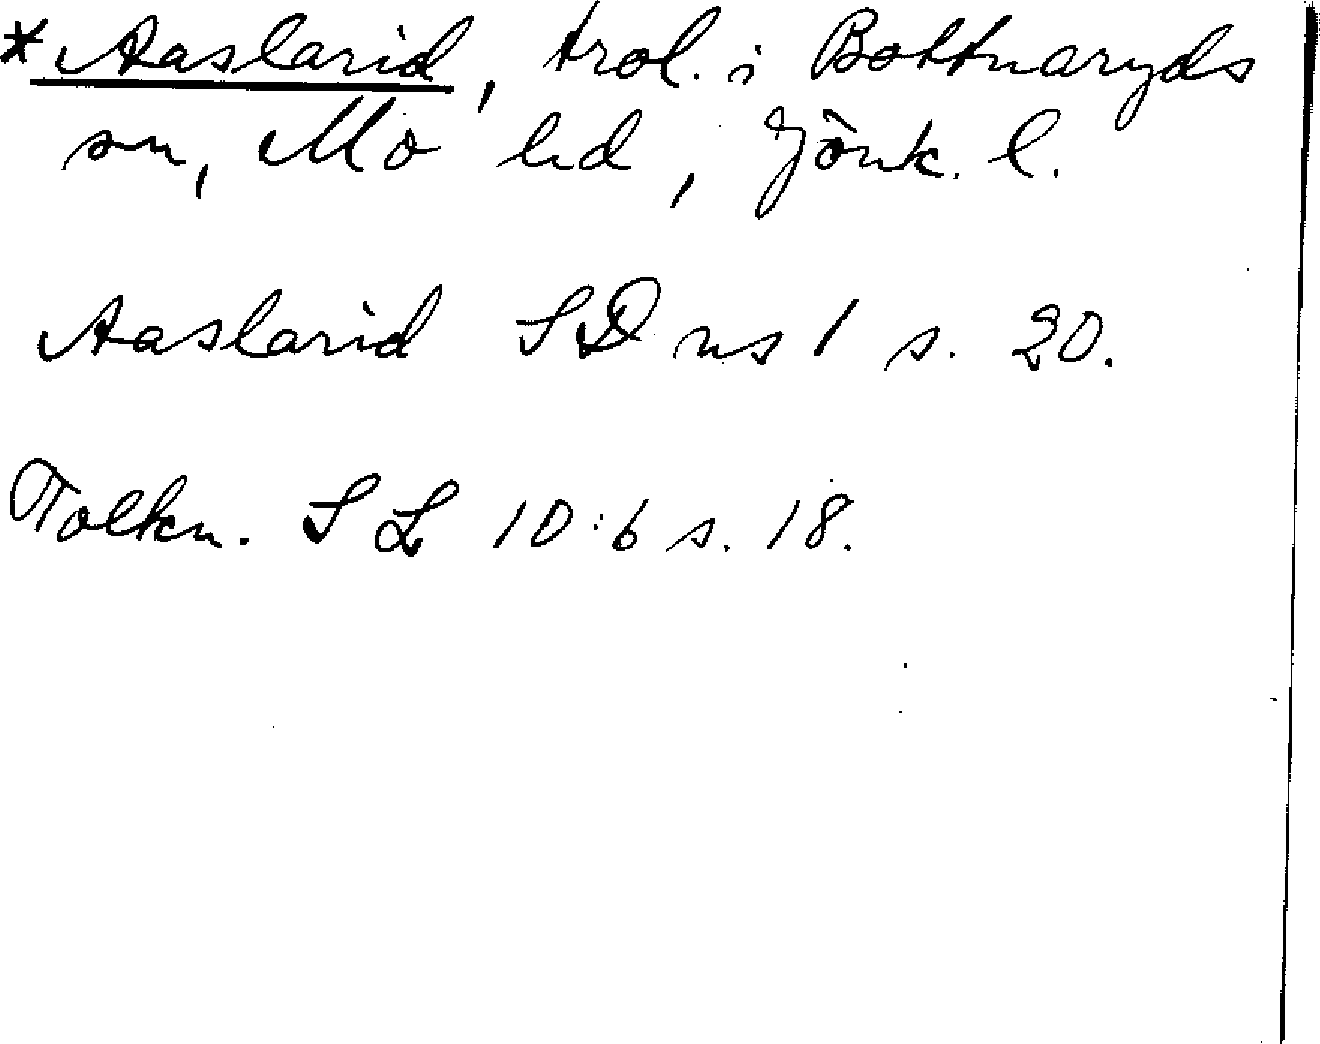 * Aaslarid, trol. i Bottnaryds
sn, Mo hd, Jönk. l.
Aaslarid SD ns 1 s. 20.
Tolkn. SL 10:6 s. 18.